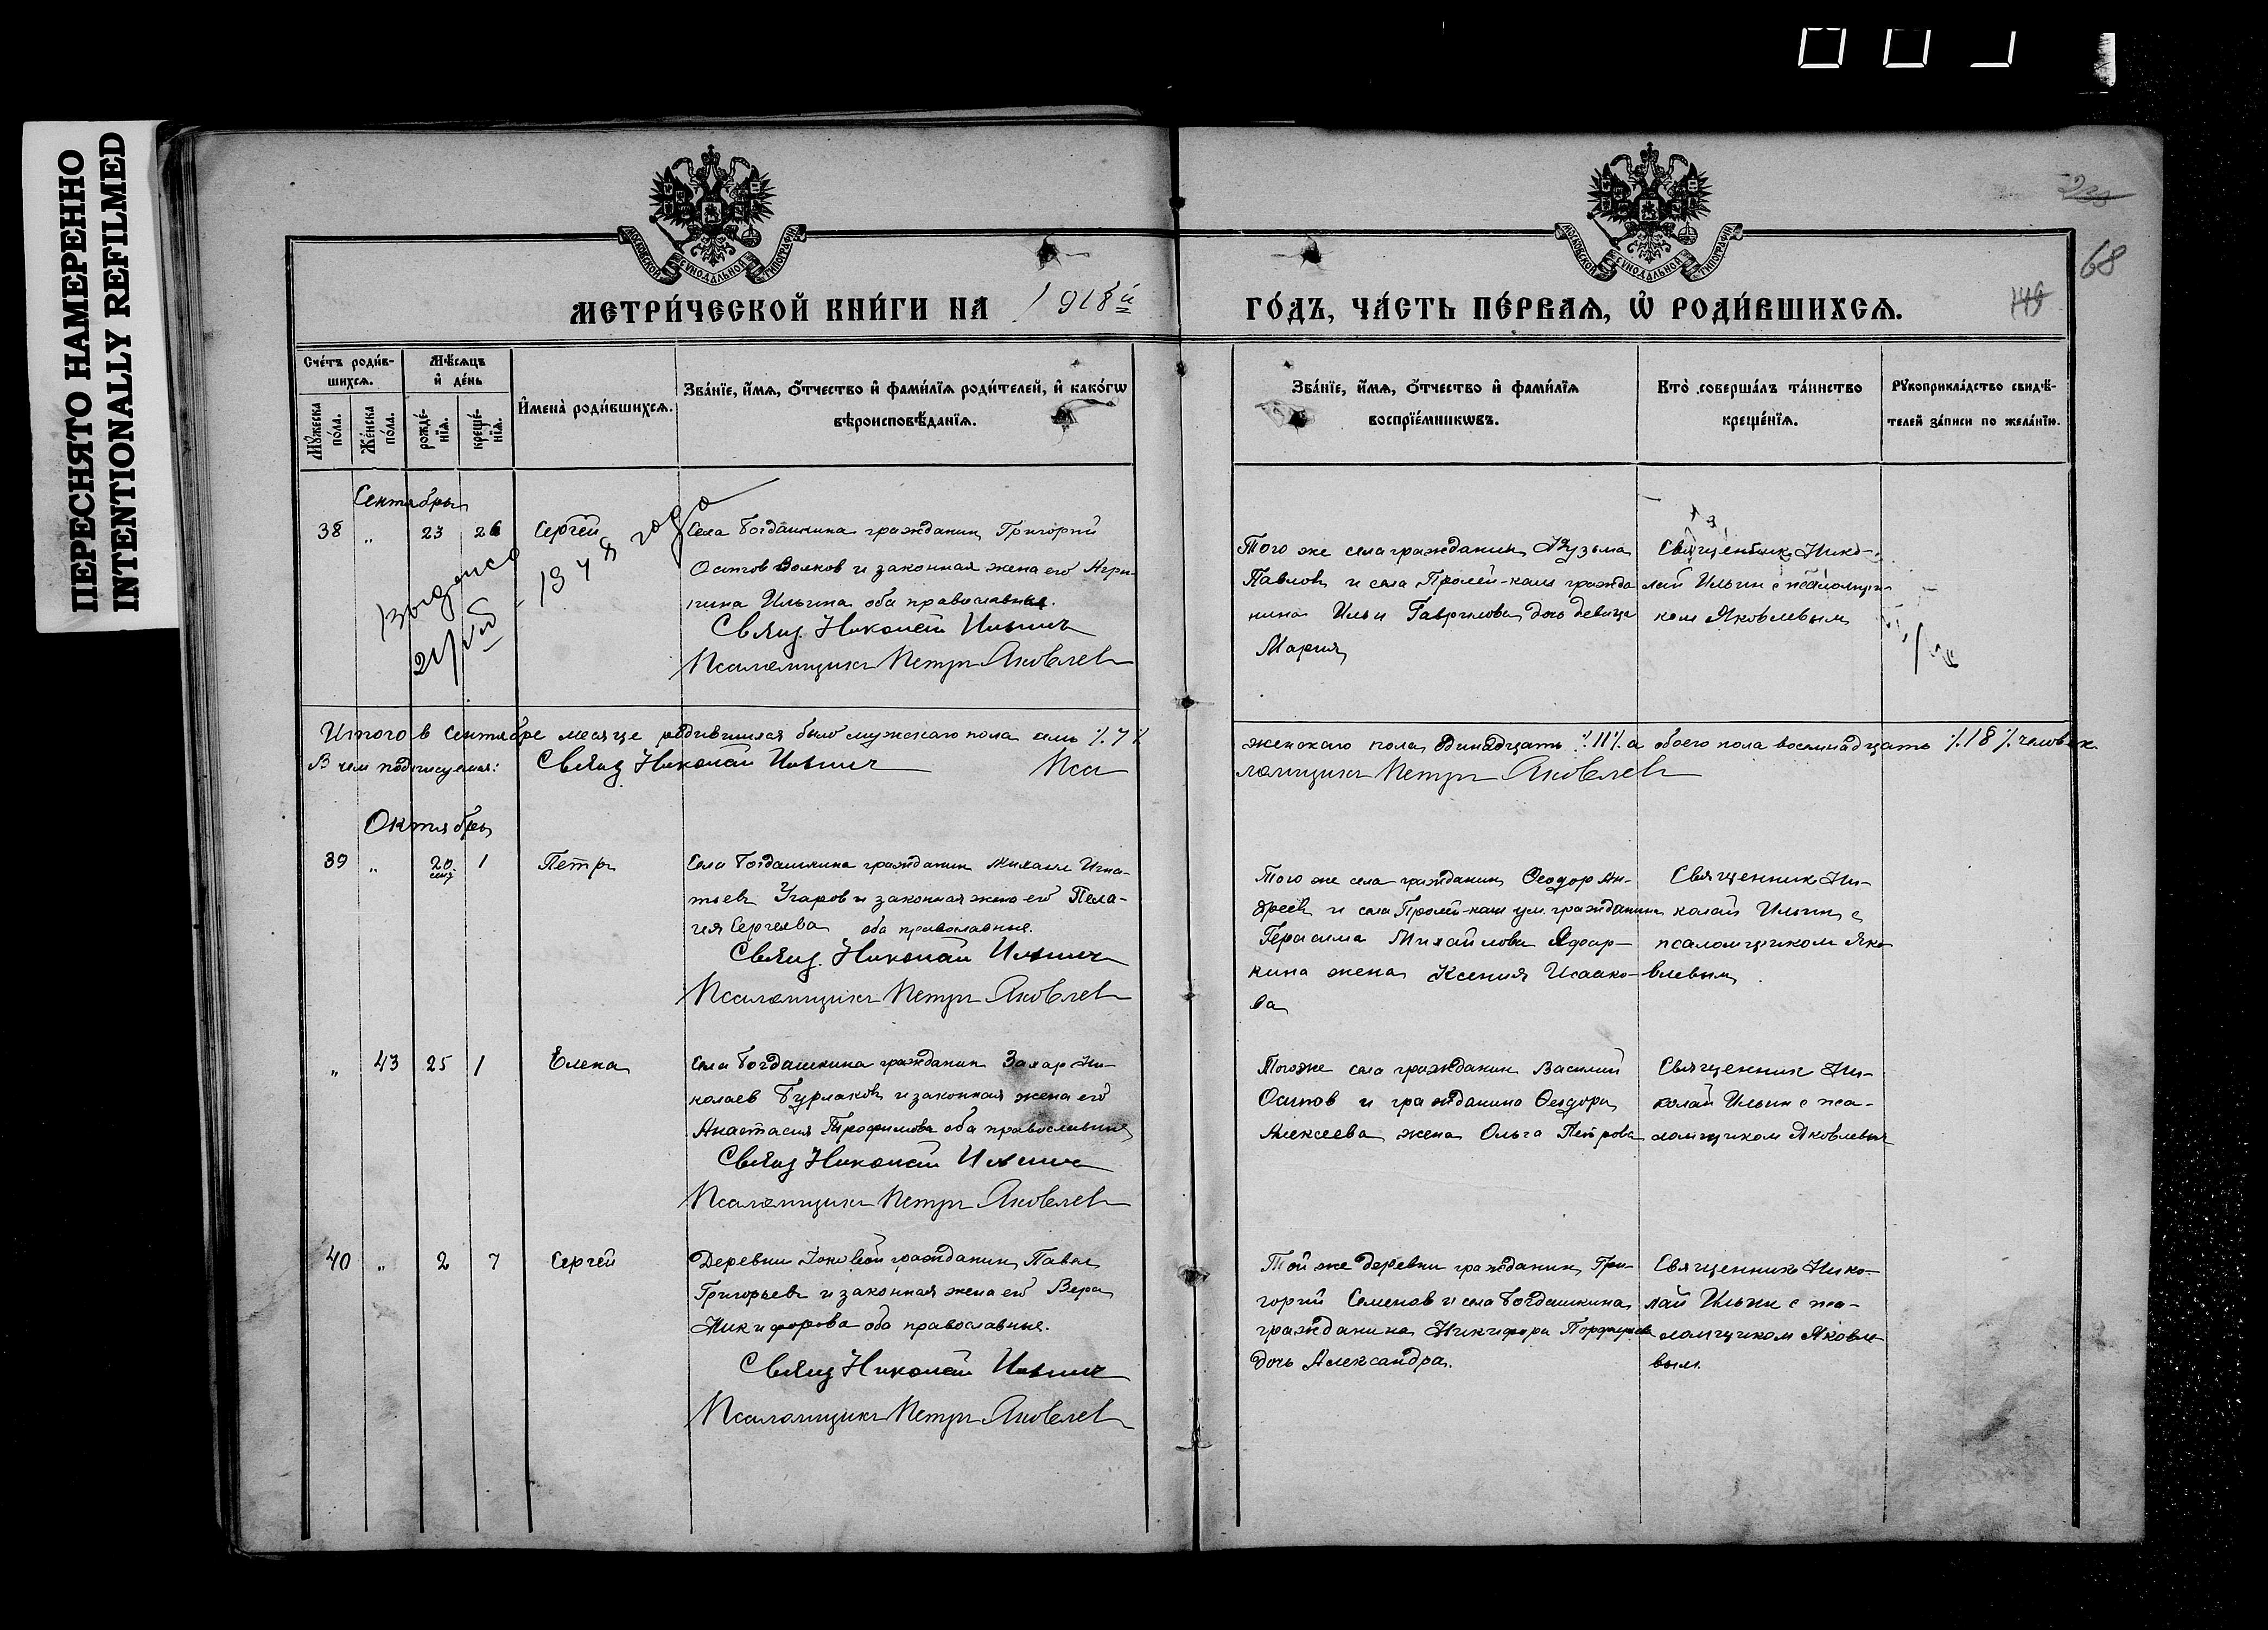 ПЕРЕСНЯТО НАМЕРЕННО
INTENTIONALLY REFILMED
68
МОСКОВСКОЙ СѴНОДАЛЬНОЙ ТИПОГРАФІИ
МОСКОВСКОЙ СѴНОДАЛЬНОЙ ТИПОГРАФІИ
МЕТРИ́ЧЕСКОЙ КНИ́ГИ НА 1918й
ГО́ДЪ, ЧА́СТЬ ПЕ́РВАЯ, Ѡ҆ РОДИ́ВШИХСЯ.
Сче́тъ роди́в-
шихся.
Мѣ́сяцъ
и҆ де́нь
Му́жеска
по́ла.
Же́нска
пола.
рожде́-
нїя.
креще́-
нїя.
И҆мена̀ роди́вшихся.
Зва́нїе, и҆́мя, ѻ҆́тчество и҆ фами́лїя роди́телей, и҆ како́гѡ
вѣроисповѣ́данїя.
Зва́нїе, и҆́мя, ѻ҆́тчество и҆ фами́лїя
воспрїе́мникѡвъ.
Кто̀ соверша́лъ та́инство
креще́нїя.
Рꙋкоприкла́дство свидѣ́-
телей за́писи по жела́нїю.
Сентябрь
38 „ 23 26 Сергей
Села Богдашкина гражданин Григорий
Осипов Волков и законная жена его Агри-
пина Ильина оба православные.
Свящ. Николай Ильин
Псаломщикъ Петръ Яковлев
Того же села гражданин Кузьма
Павлов и села Пролей-каши гражда
нина Ильи Гаврилова дочь девица
Мария
Священник Нико-
лай Ильин с псаломщи-
ком Яковлевым
Итого в Сентябре месяце родившихся было мужскаго пола семь ⁒ 7 ⁒
женскаго пола одинадцать ⁒ 11 ⁒ а обоего пола восемнадцать ⁒ 18 ⁒ человек.
В чем подписуемся: Свящ Николай Ильин Пса
ломщикъ Петръ Яковлев
Октябрь
39 „ 20 сент 1 Петр
Села Богдашкина гражданин Михаил Игна-
тьев Угаров и законная жена его Пела-
гея Сергеева оба православные.
Свящ. Николай Ильин
Псаломщикъ Петръ Яковлев
Того же села гражданин Феодор Ан-
дреев и села Пролей-каши ум. гражданина
Герасима Михайлова
кина жена Ксения Исаако-
ва
Священник Ни-
колай Ильин с
псаломщиком Яко
влевым
„ 43 25 1 Елена
Села Богдашкина гражданин Захар Ни-
колаев Бурлаков и законная жена его
Анастасия Трофимова оба православные
Свящ Николай Ильин
Псаломщикъ Петръ Яковлев
Тогоже села гражданин Василий
Осипов и гражданина Феодора
Алексеева жена Ольга Петрова
Священник Ни-
колай Ильин с пса-
ломщиком Яковлевым
40 „ 2 7 Сергей
Деревни гражданин Павел
Григорьев и законная жена его Вера
Никифорова оба православные.
Свящ Николай Ильин
Псаломщикъ Петръ Яковлев
Той же деревни гражданин Гри-
горий Семенов и села Богдашкина
гражданина Никифора Порфирьева
дочь Александра.
Священник Нико-
лай Ильин с пса-
ломщиком Яковле
вым.